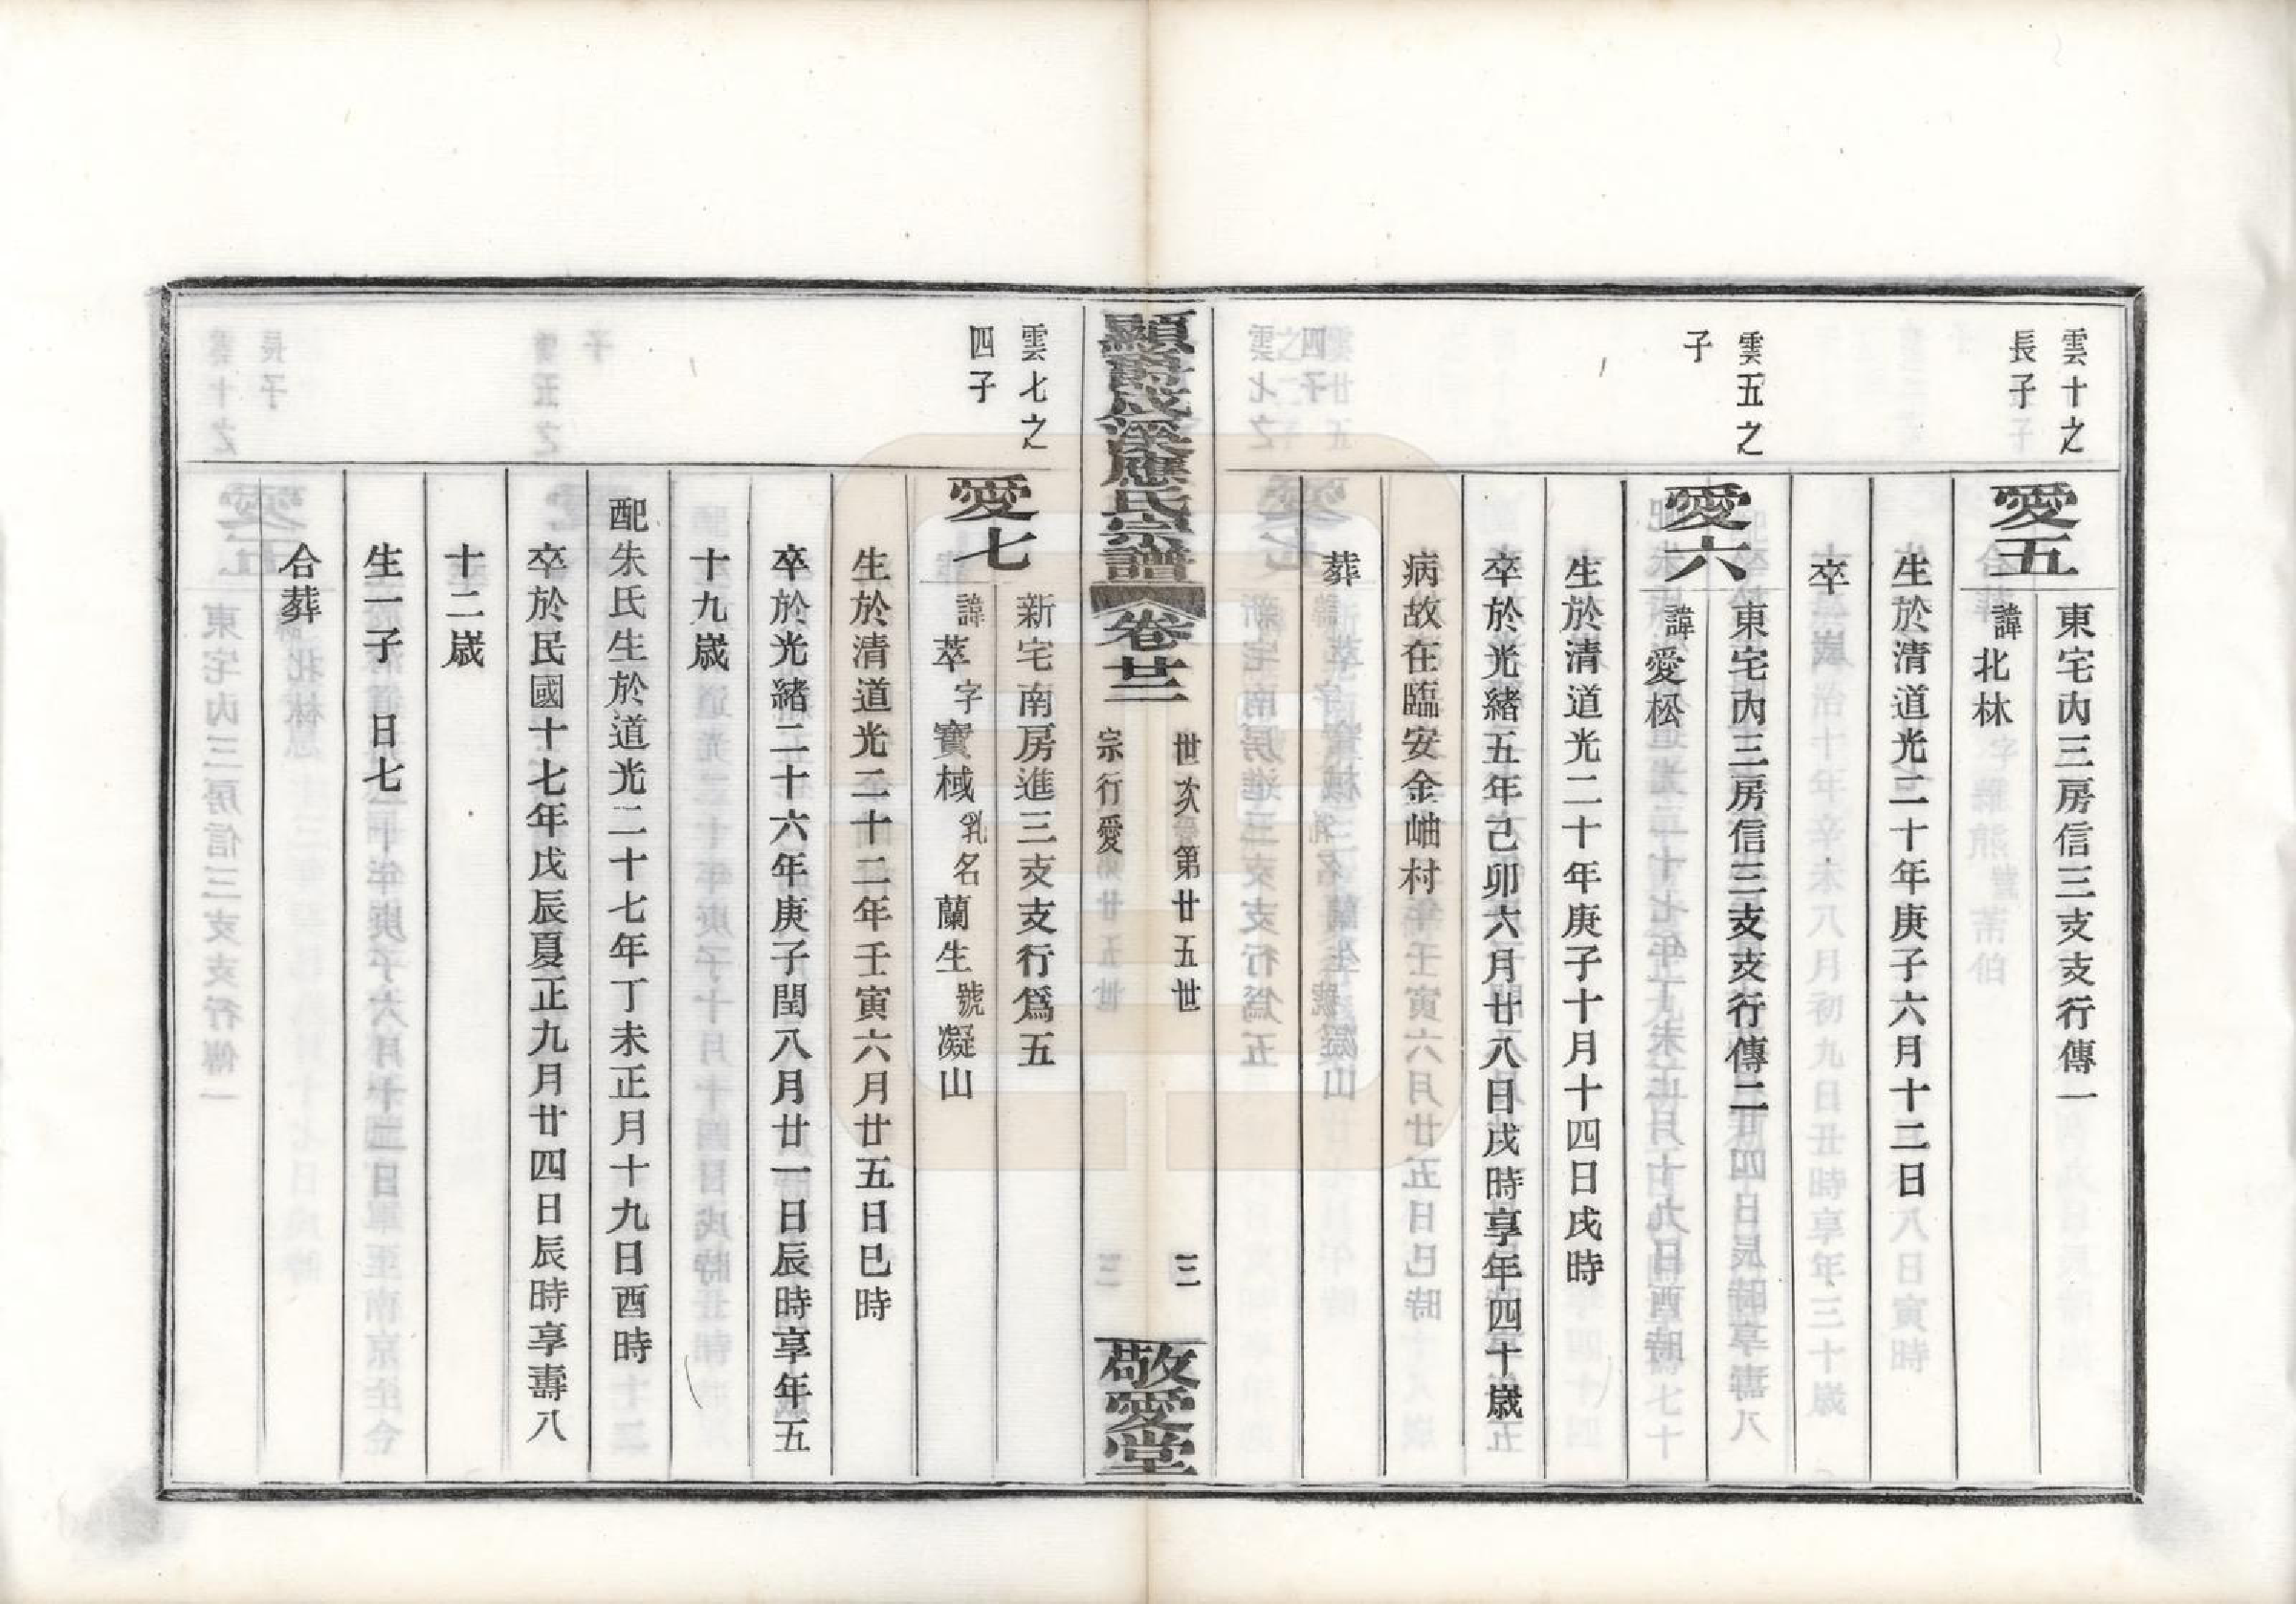 雲十之
長子
愛五
東宅內三房信三支支行傳一
諱北林
生於清道光二十年庚子六月十二日
卒
雲五之
子
愛六
東宅內三房信三支支行傳二
諱愛松
生於清道光二十年庚子十月十四日戌時
卒於光緒五年己卯六月廿八日戌時享年四十歲
病故在臨安金岫村
葬
顯爵成溪應氏宗譜
卷廿三
世次第廿五世
宗行愛
三
敬愛堂
雲七之
四子
愛七
新宅南房進三支支行爲五
諱萃字寶棫乳名蘭生號凝山
生於清道光二十二年壬寅六月廿五日巳時
卒於光緒二十六年庚子閏八月廿一日辰時享年五
十九歲
配朱氏生於道光二十七年丁未正月十九日酉時
卒於民國十七年戊辰夏正九月廿四日辰時享壽八
十二歲
生一子 日七
合葬